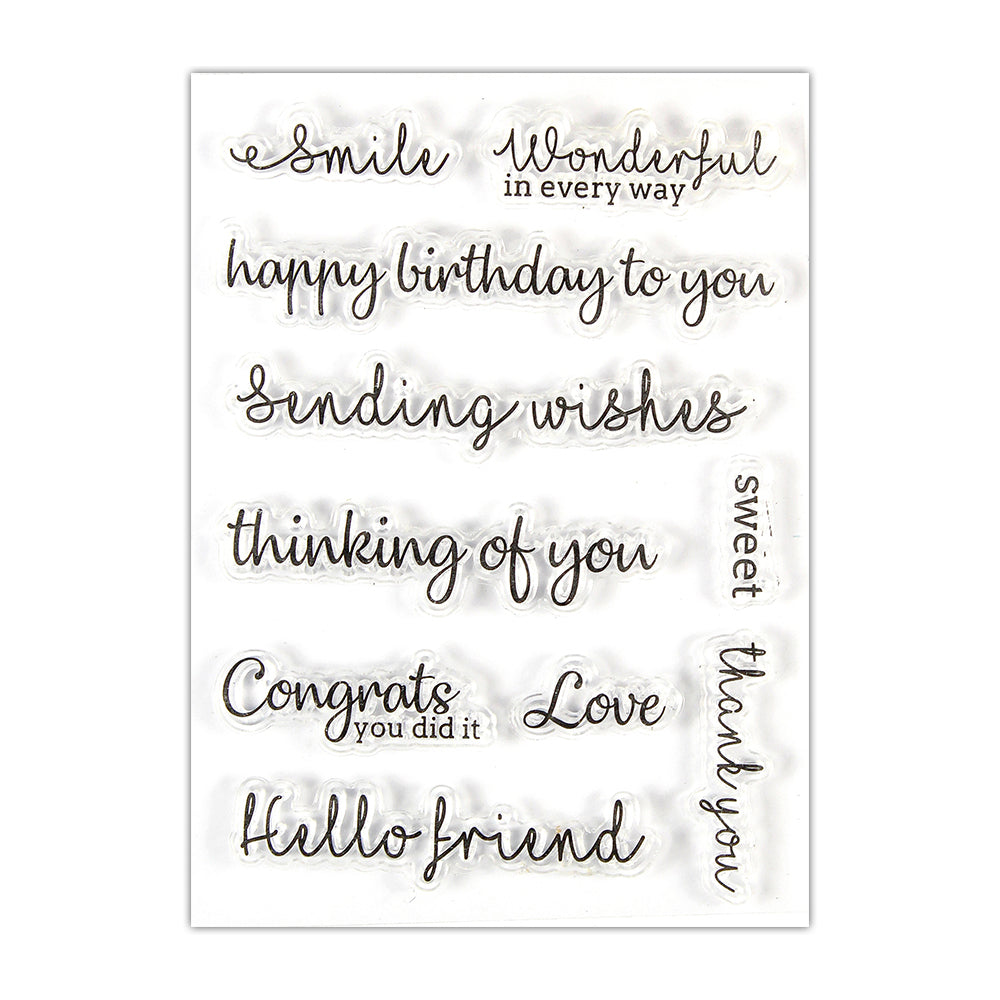 Smile
Wonderful
in every way
happy birthday to you
Sending wishes
sweet
thinking of you
Congrats
you did it
Love
thank you
Hello friend